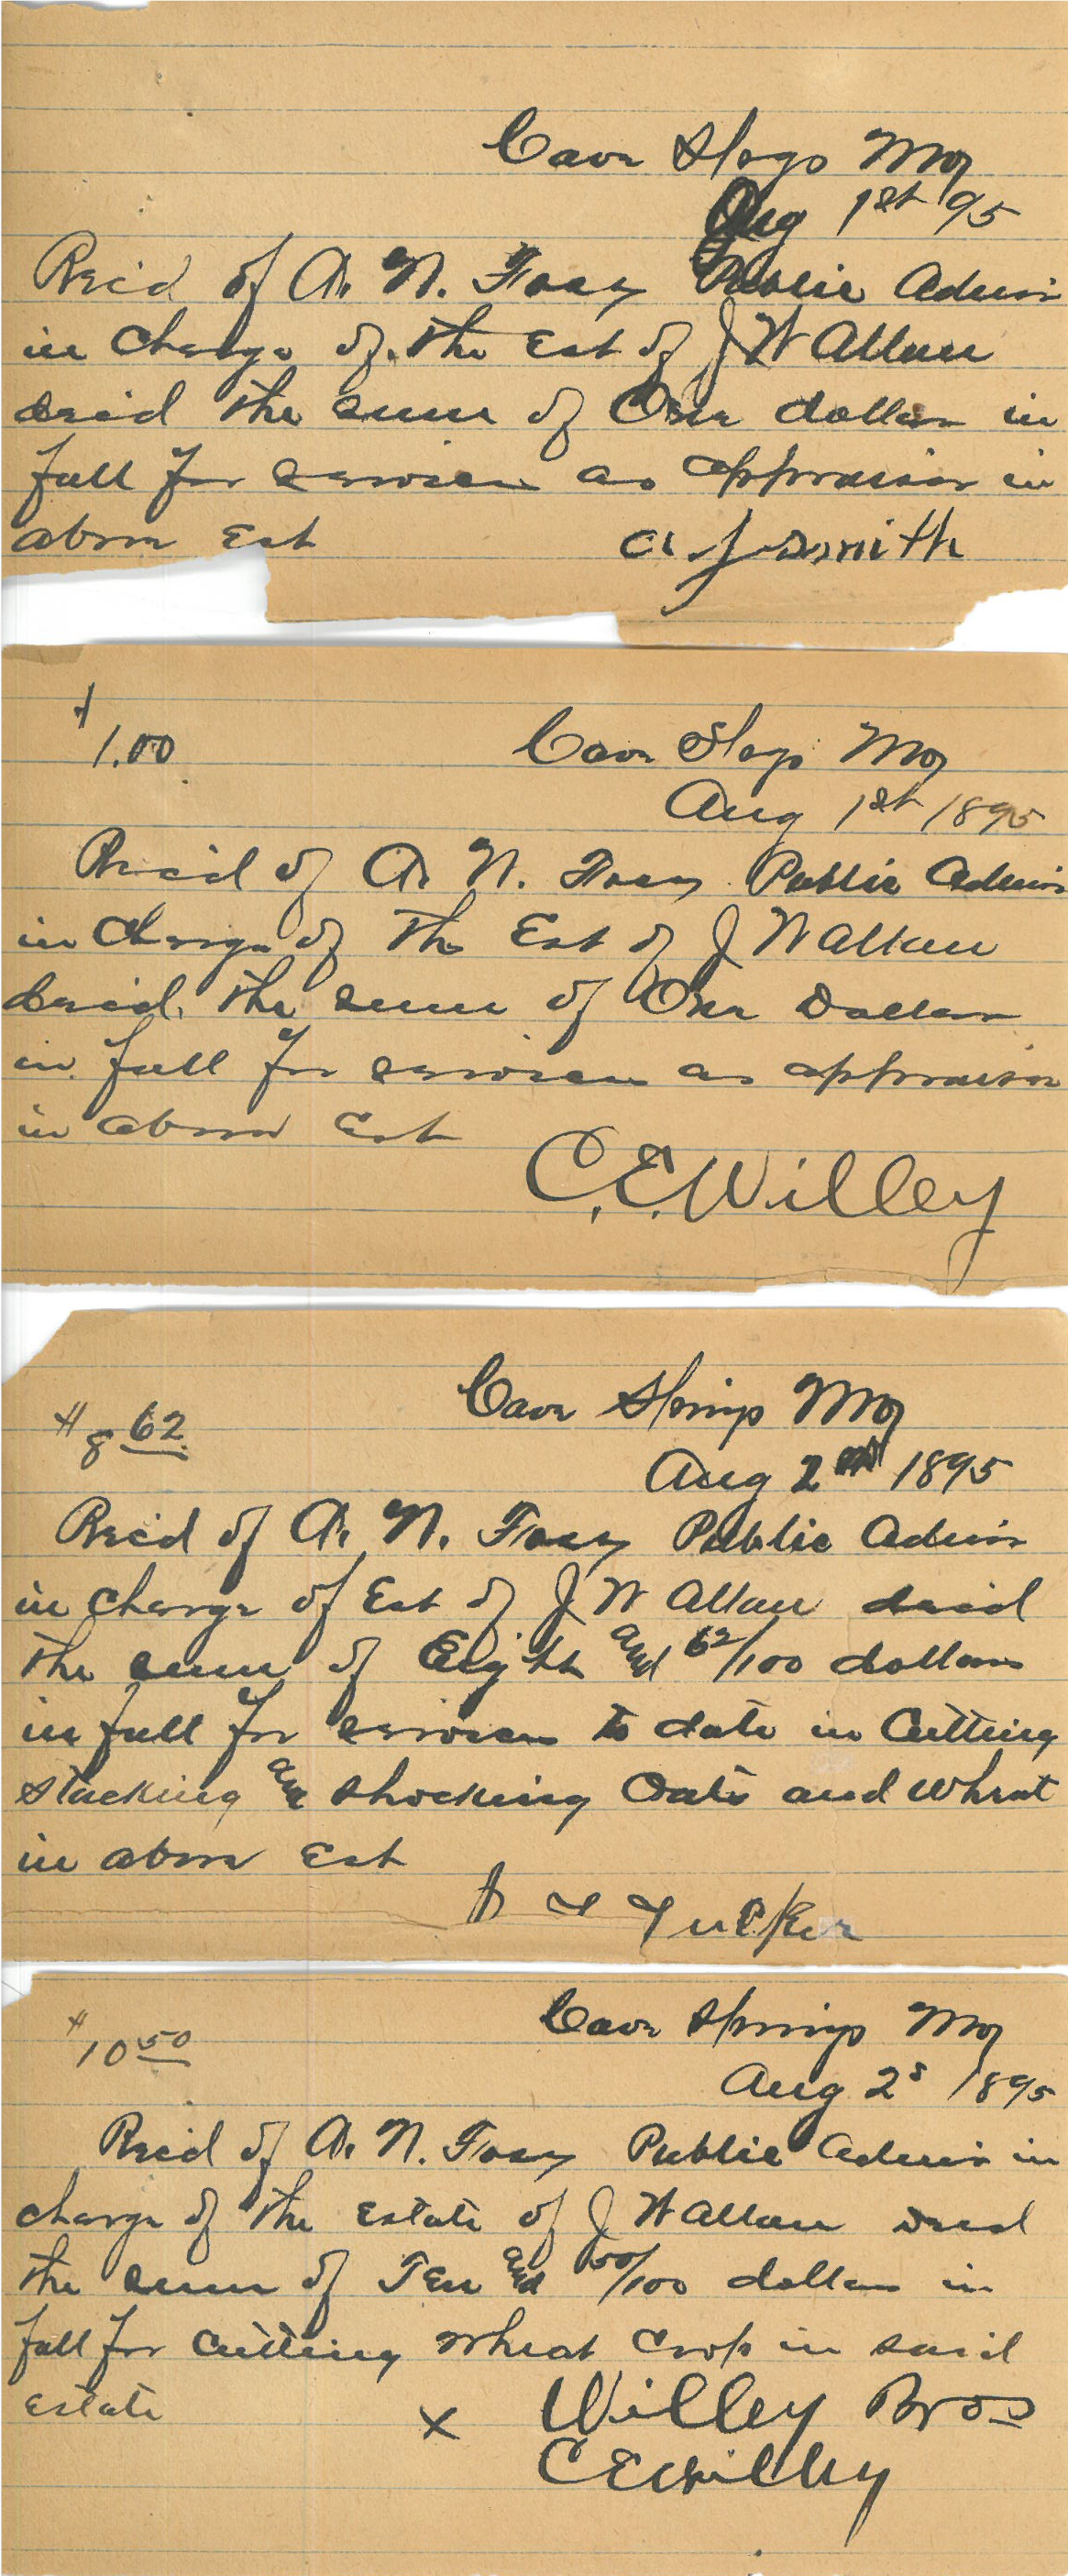 Cave Spgs Mo
Aug 1st 95
Rec'd of A. N. Frary Public Admin
in Charge of the Est of J W Allan
decd the sum of One dollar in
full for services as appraiser in
above Est A J Smith
$
1.00 Cave Spgs Mo
Aug 1st 1895
Rec'd of A. N. Frary Public Admin
in Charge of the Est of J W Allan
decd. the sum of One Dollar
in full for services as appraiser
in above Est
C. E. Willey
Cave Springs Mo
$8 62
Aug 2nd 1895
Rec'd of A. N. Frary Public Admin
in charge of Est of J W Allan decd
the sum of Eight and 62/100 dollars
in full for services to date in Cutting
stacking and shocking Oats and Wheat
in above Est
Tucker
$10 50 Cave Springs Mo
Aug 2 1895
Rec'd of A. N. Frary Public Admin in
charge of the Estate of J W Allan decd
the sum of Ten and 50/100 dollars in
full for Cutting Wheat Crop in said
Estate x Willey Bros
C E Willey